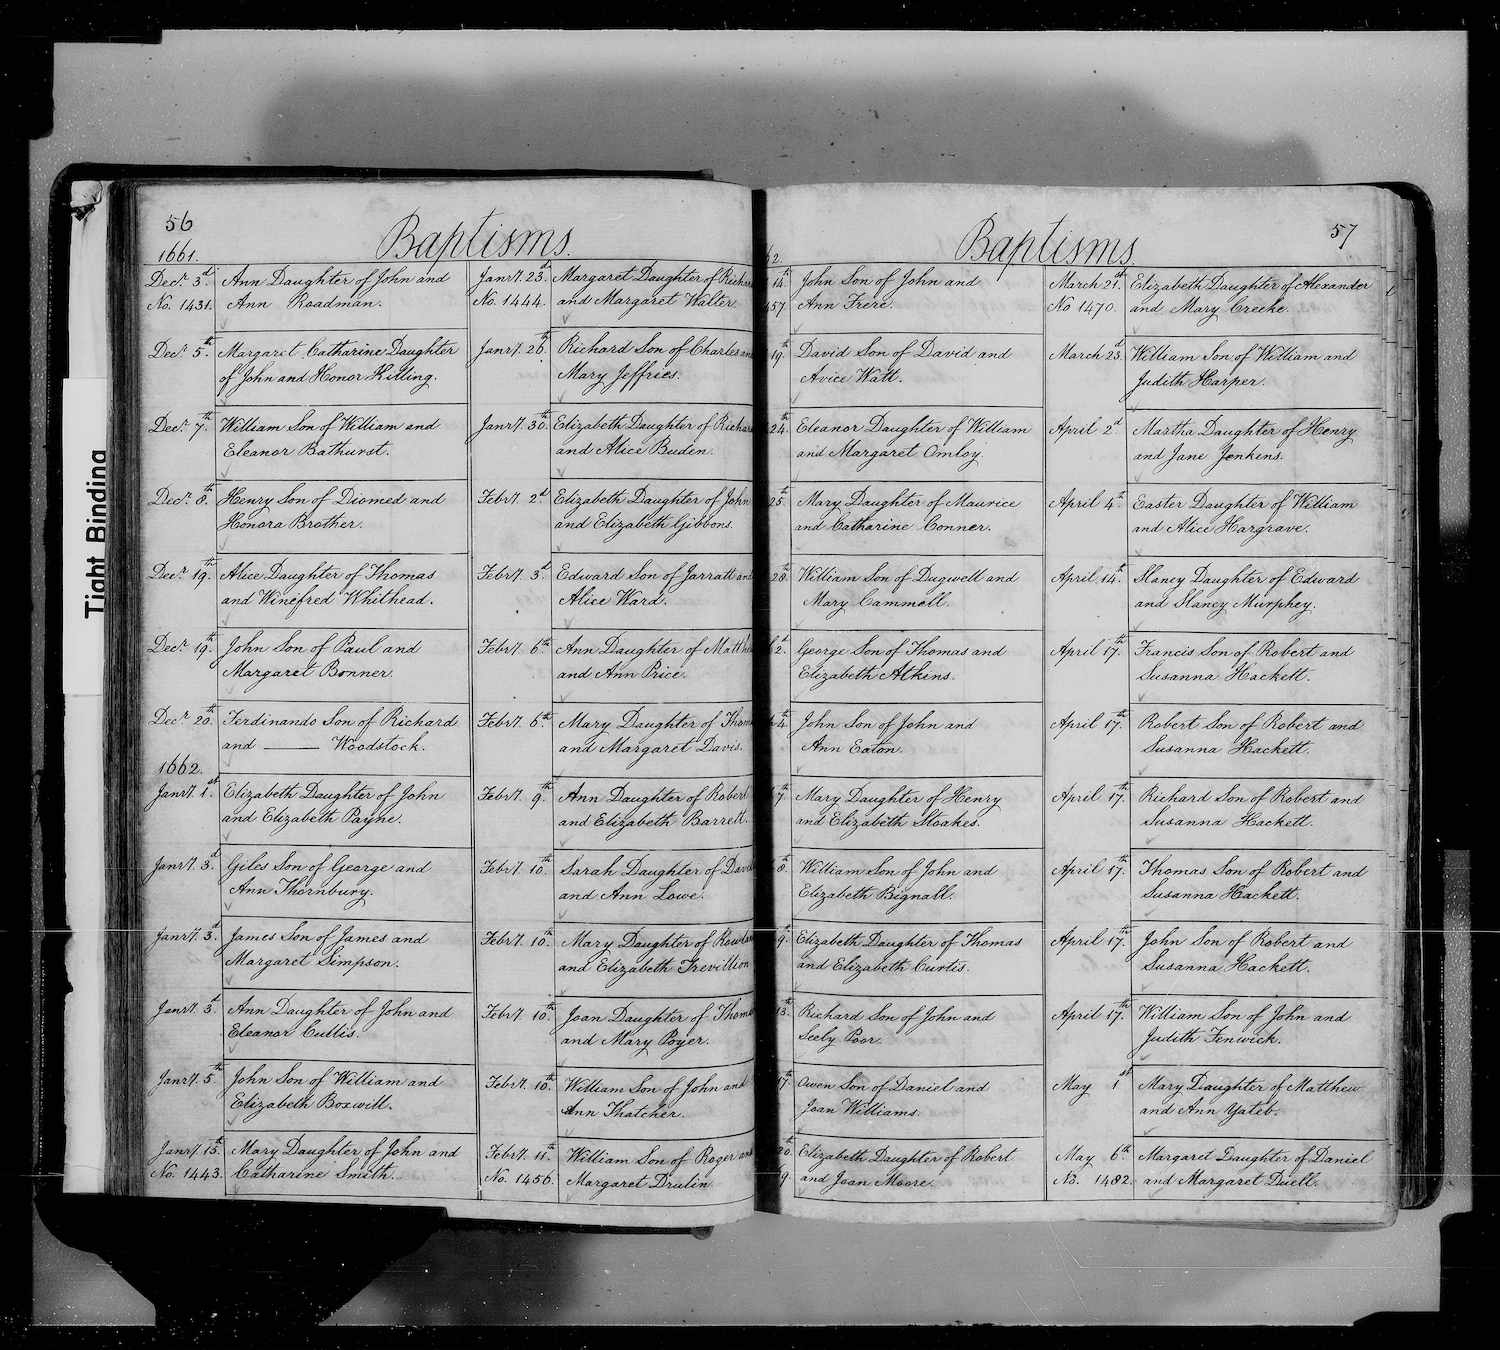 Tight Binding
56
Baptisms.
1661.
Decr. 3d. Ann Daughter of John and
No. 1431. Ann Roadman.
Decr. 5th. Margaret Catharine Daughter
of John and Honor Killing.
Decr. 7th. William Son of William and
Eleanor Bathurst.
Decr. 8th. Henry Son of Diomed and
Honora Brother.
Decr. 19th. Alice Daughter of Thomas
and Winefred Whithead.
Decr. 19th. John Son of Paul and
Margaret Bonner.
Decr. 20th. Ferdinando Son of Richard
and ——— Woodstock.
1662.
Janry. 1st. Elizabeth Daughter of John
and Elizabeth Payne.
Janry. 3d. Giles Son of George and
Ann Thornbury.
Janry. 3d. James Son of James and
Margaret Simpson.
Janry. 3d. Ann Daughter of John and
Eleanor Cullis.
Janry. 5th. John Son of William and
Elizabeth Boxwill.
Janry. 15th. Mary Daughter of John and
No. 1443. Catharine Smith.
Janry. 23d. Margaret Daughter of Richar
No. 1444. and Margaret Walter.
Janry. 26th. Richard Son of Charles an
Mary Jeffries.
Janry. 30th. Elizabeth Daughter of Richar
and Alice Buden.
Febry. 2d. Elizabeth Daughter of John
and Elizabeth Gibbons.
Febry. 3d. Edward Son of Jarratt and
Alice Ward.
Febry. 6th. Ann Daughter of Matth
and Ann Price.
Febry. 6th. Mary Daughter of Thom
and Margaret Davis.
Febry. 9th. Ann Daughter of Robert
and Elizabeth Barrett.
Febry. 10th. Sarah Daughter of David
and Ann Lowe.
Febry. 10th. Mary Daughter of Rowla
and Elizabeth Trevillion
Febry. 10th. Joan Daughter of Thoma
and Mary Poyer.
Febry. 10th. William Son of John and
Ann Thatcher.
Febry. 11th. William Son of Roger an
No. 1456. Margaret Drulin
57
Baptisms.
62.
14th. John Son of John and
457 Ann Frere.
19th. David Son of David and
Avice Watt.
24th. Eleanor Daughter of William
and Margaret Omloy.
25th. Mary Daughter of Maurice
and Catharine Conner.
28th. William Son of Dugwell and
Mary Cammell.
2d. George Son of Thomas and
Elizabeth Atkins.
4th. John Son of John and
Ann Eaton.
7th. Mary Daughter of Henry
and Elizabeth Stoakes.
8th. William Son of John and
Elizabeth Bignall.
9th. Elizabeth Daughter of Thomas
and Elizabeth Curtis.
13th. Richard Son of John and
Seeby Poor.
17th. Owen Son of Daniel and
Joan Williams.
20th. Elizabeth Daughter of Robert
9. and Joan Moore.
March 21st. Elizabeth Daughter of Alexander
No 1470. and Mary Creeke.
March 23d. William Son of William and
Judith Harper.
April 2d Martha Daughter of Henry
and Jane Jenkens.
April 4th. Easter Daughter of William
and Alice Hargrave.
April 14th. Slaney Daughter of Edward
and Slaney Murphey.
April 17th. Francis Son of Robert and
Susanna Hackett.
April 17th. Robert Son of Robert and
Susanna Hackett.
April 17th. Richard Son of Robert and
Susanna Hackett.
April 17th. Thomas Son of Robert and
Susanna Hackett.
April 17th. John Son of Robert and
Susanna Hackett.
April 17th. William Son of John and
Judith Fenwick.
May 1st Mary Daughter of Matthew
and Ann Yateb.
May 6th Margaret Daughter of Daniel
No. 1482. and Margaret Duell.